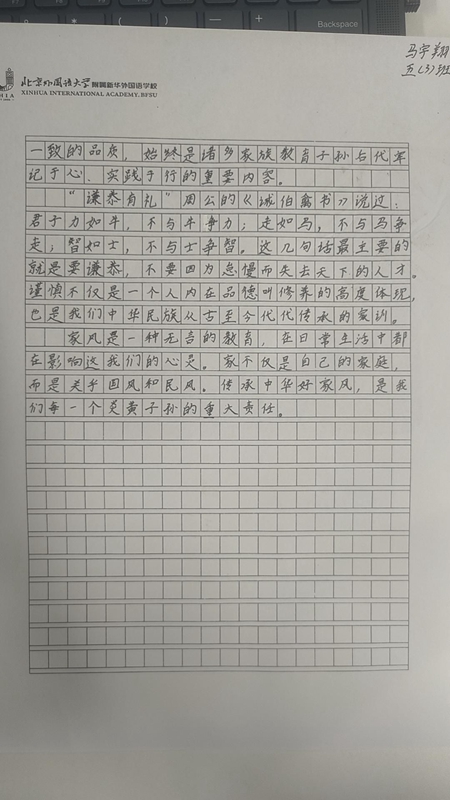 Backspace
马宇翔
五(3)班
北京外国语大学附属新华外国语学校
XINHUA INTERNATIONAL ACADEMY, BFSU
一致的品质，始终是诸多家族教育子孙后代牢
记于心、实践于行的重要内容。
“谦恭有礼”周公的《诫伯禽书》说过：
君子力如牛，不与牛争力；走如马，不与马争
走；智如士，不与士争智。这几句话最主要的
就是要谦恭，不要因为怠慢而失去天下的人才。
谨慎不仅是一个人内在品德叫修养的高度体现，
也是我们中华民族从古至今代代传承的家训。
家风是一种无言的教育，在日常生活中都
在影响这我们的心灵。家不仅是自己的家庭，
而是关乎国风和民风。传承中华好家风，是我
们每一个炎黄子孙的重大责任。